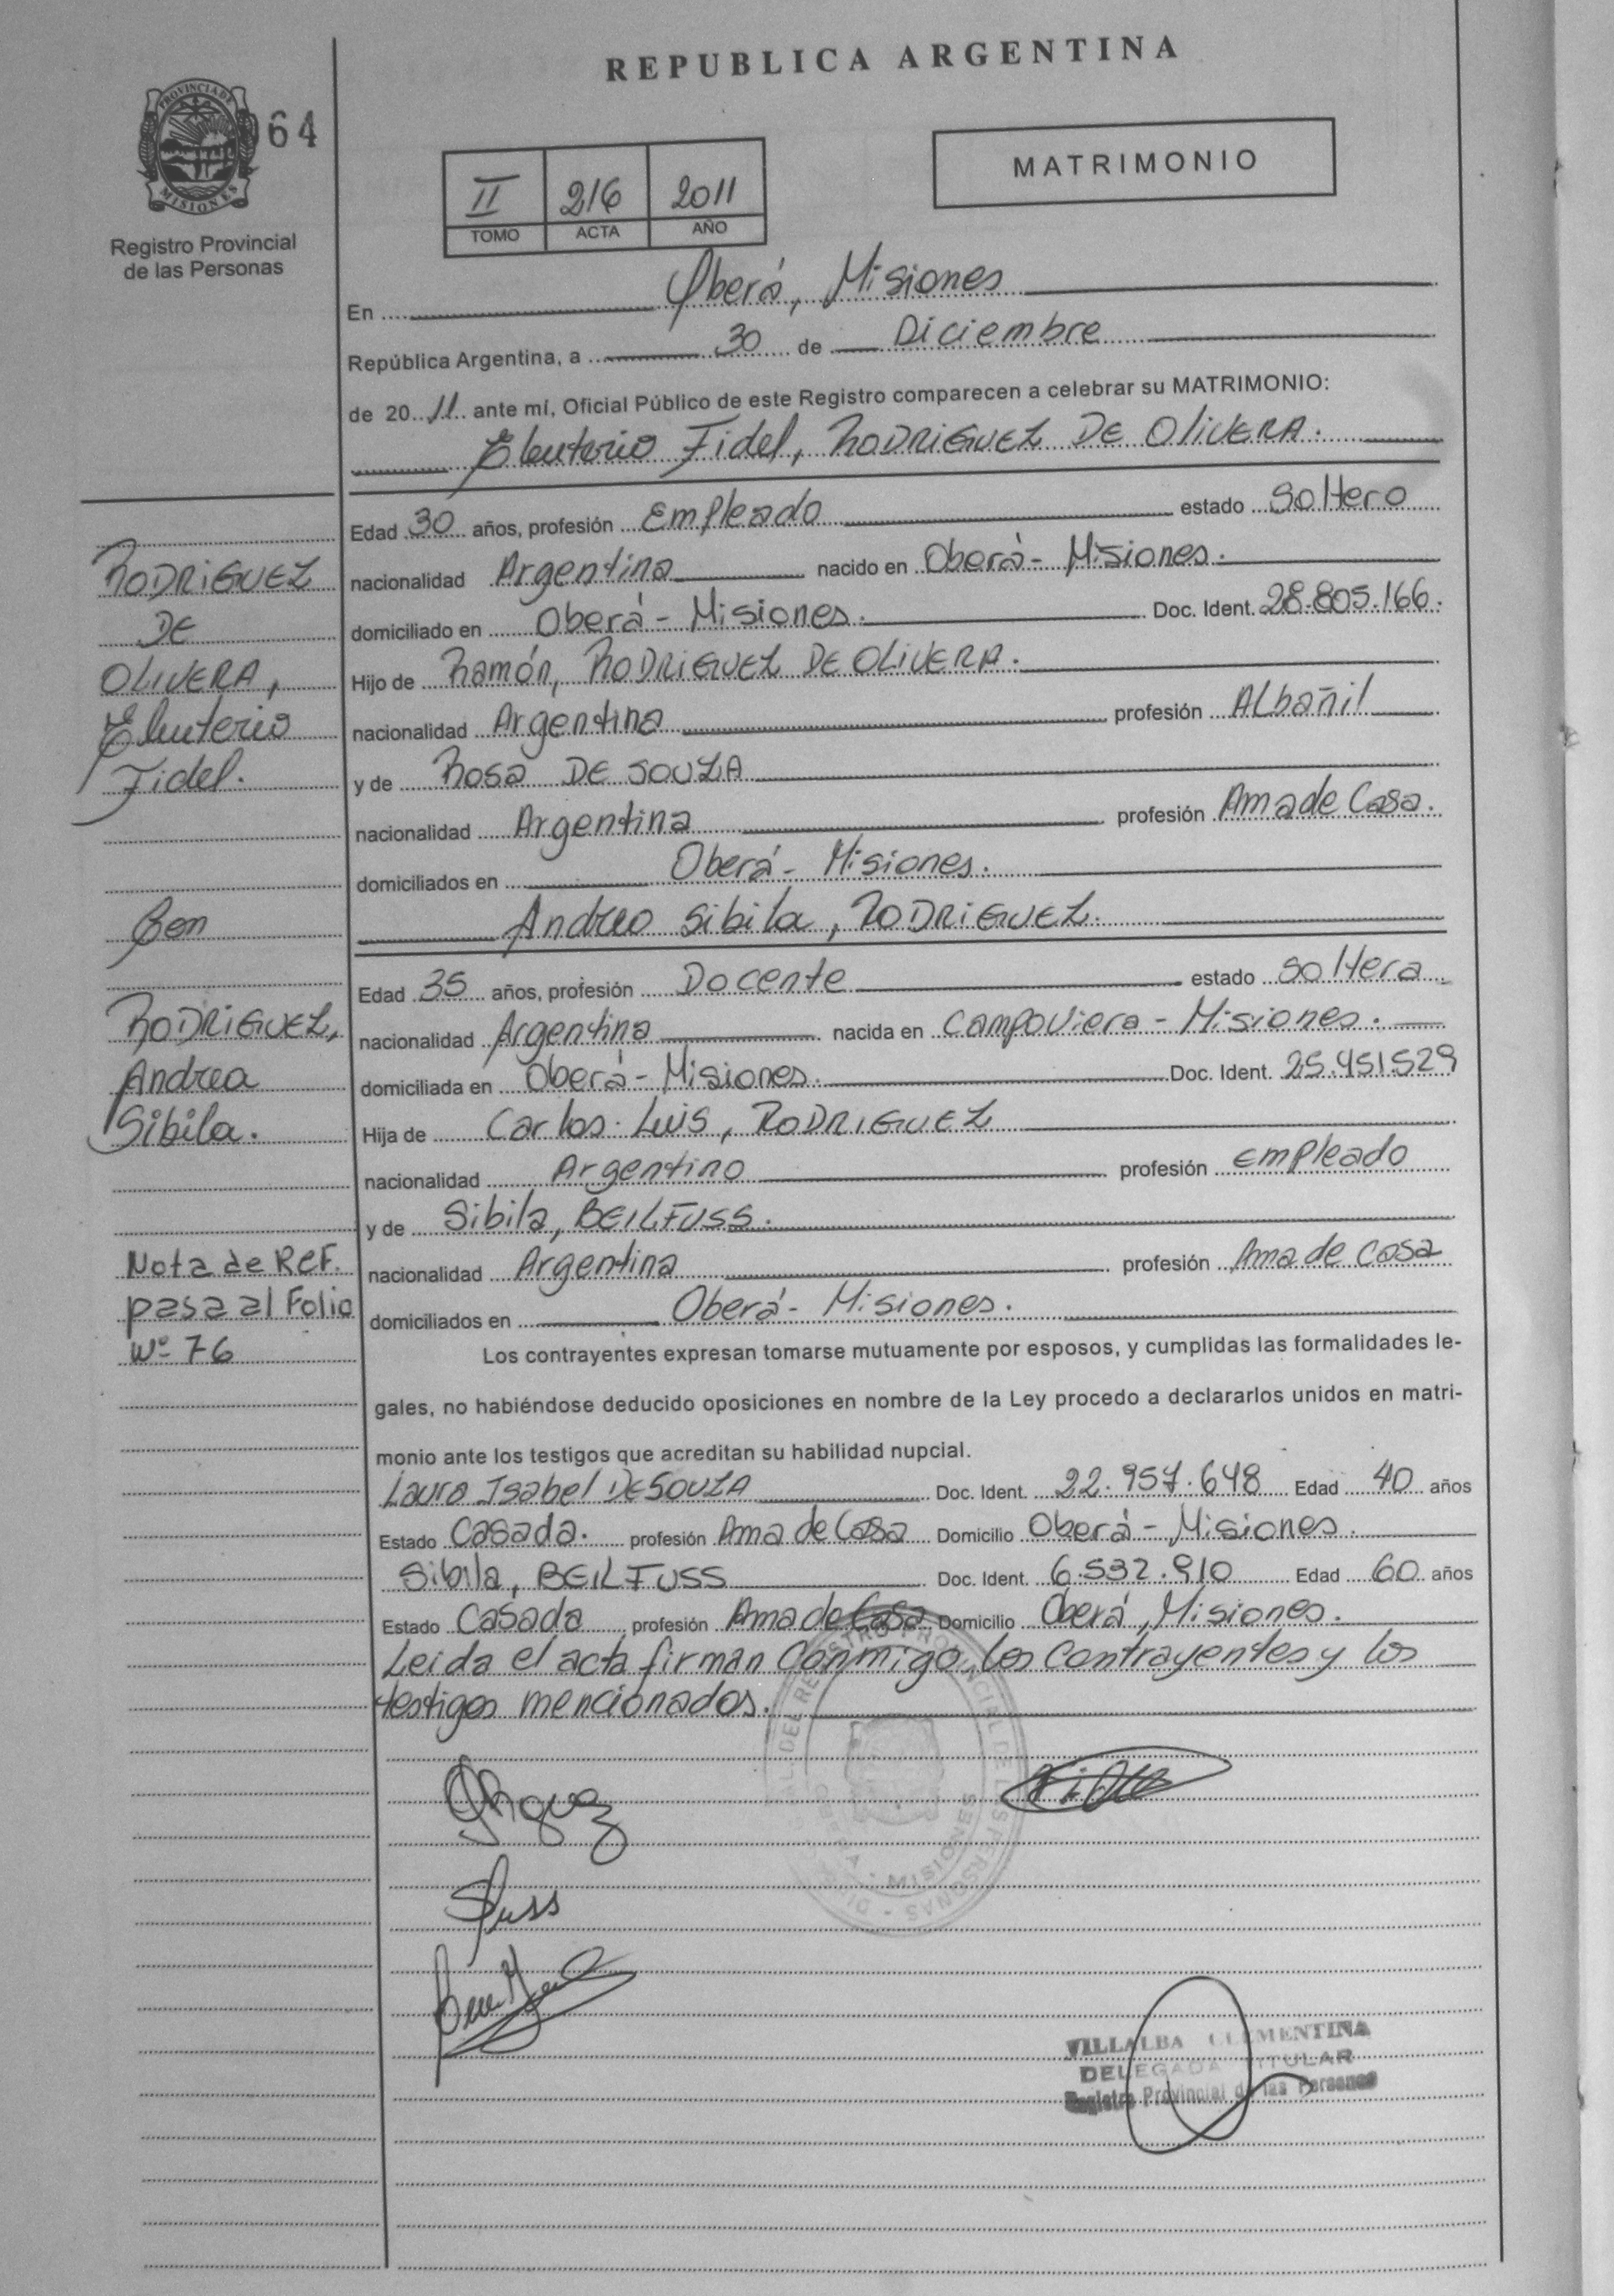 REPUBLICA ARGENTINA
PROVINCIA DE
MISIONES
64
Registro Provincial
de las Personas
II 216 2011
TOMO ACTA AÑO
MATRIMONIO
En Oberá, Misiones
República Argentina, a 30 de Diciembre
de 2011 ante mí, Oficial Público de este Registro comparecen a celebrar su MATRIMONIO:
Eleuterio Fidel, RODRIGUEZ DE OLIVERA.
Edad 30 años, profesión Empleado estado Soltero
nacionalidad Argentina nacido en Oberá - Misiones.
domiciliado en Oberá - Misiones. Doc. Ident. 28.805.166.
Hijo de Ramón, RODRIGUEZ DE OLIVERA.
nacionalidad Argentina profesión Albañil
y de Rosa DE SOUZA
nacionalidad Argentina profesión Ama de Casa.
domiciliados en Oberá - Misiones.
Andrea Sibila, RODRIGUEZ.
Edad 35 años, profesión Docente estado Soltera
nacionalidad Argentina nacida en Campo Viera - Misiones.
domiciliada en Oberá - Misiones. Doc. Ident. 25.451.529
Hija de Carlos Luis, RODRIGUEZ
nacionalidad Argentino profesión Empleado
y de Sibila, BEILFUSS.
nacionalidad Argentina profesión Ama de casa
domiciliados en Oberá - Misiones.
Los contrayentes expresan tomarse mutuamente por esposos, y cumplidas las formalidades le-
gales, no habiéndose deducido oposiciones en nombre de la Ley procedo a declararlos unidos en matri-
monio ante los testigos que acreditan su habilidad nupcial.
Laura Isabel DE SOUZA Doc. Ident. 22.957.648 Edad 40 años
Estado Casada. profesión Ama de Casa Domicilio Oberá - Misiones.
Sibila, BEILFUSS Doc. Ident. 6.532.910 Edad 60 años
Estado Casada profesión Ama de Casa Domicilio Oberá, Misiones.
Leida el acta firman conmigo los contrayentes y los
testigos mencionados.
RODRIGUEZ
DE
OLIVERA,
Eleuterio
Fidel.
Con
RODRIGUEZ,
Andrea
Sibila.
Nota de Ref.
pasa al Folio
Nº 76
DEL REGISTRO PROVINCIAL DE LAS PERSONAS
MISIONES
VILLALBA CLEMENTINA
DELEGADA TITULAR
Registro Provincial de las Personas